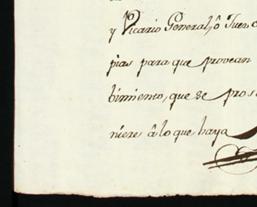 y Vicario General, ô Juen
pias para que provean
bimiento, que se pros
niere â lo que haya